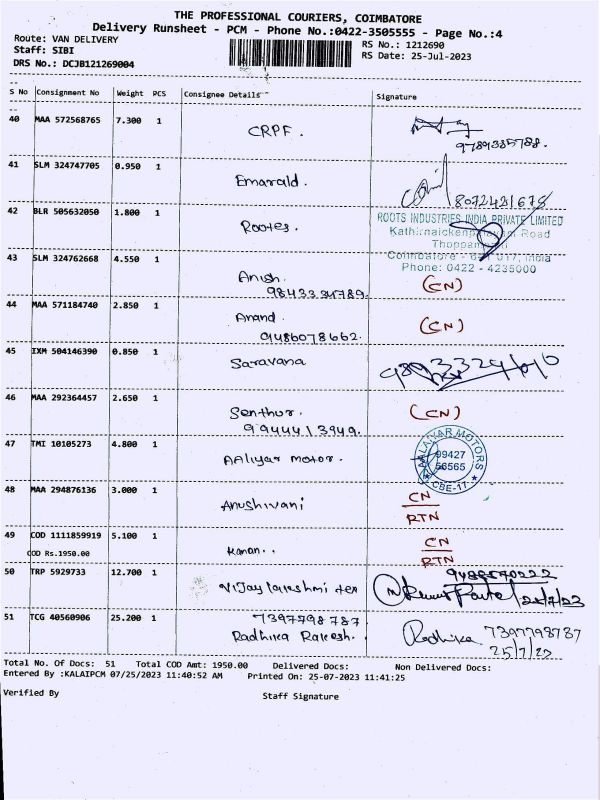 THE PROFESSIONAL COURIERS, COIMBATORE
Delivery Runsheet - PCM - Phone No.:0422-3505555 - Page No.:4
Route: VAN DELIVERY RS No.: 1212690
Staff: SIBI RS Date: 25-Jul-2023
DRS No.: DCJB121269004
S No Consignment No Weight PCS Consignee Details Signature
40 MAA 572568765 7.300 1 CRPF.
9789385788.
41 SLM 324747705 0.950 1 Emarald.
8072431678
42 BLR 505632050 1.800 1 Rootes. ROOTS INDUSTRIES INDIA PRIVATE LIMITED
Road
Thoppam
43 SLM 324762668 4.550 1 Anish. Coimbatore India
Phone: 0422 - 4235000
9843334789. (CN)
44 MAA 571184740 2.850 1 Anand. (CN)
9486078662.
45 IXM 504146390 0.850 1 Saravana
46 MAA 292364457 2.650 1 Senthur. (CN)
9944413949.
47 TMI 10105273 4.800 1 AAliyar motor. MOTORS
99427
56565
CBE-17
48 MAA 294876136 3.000 1 Anushivani CN
RTN
49 COD 1111859919 5.100 1 Kanan.. CN
COD Rs.1950.00 RTN
50 TRP 5929733 12.700 1 Vijay lakshmi tex
51 TCG 40560906 25.200 1 7397798787
Radhika Rakesh. Radhika 7397798787
25/7/23
Total No. Of Docs: 51 Total COD Amt: 1950.00 Delivered Docs: Non Delivered Docs:
Entered By :KALAIPCM 07/25/2023 11:40:52 AM Printed On: 25-07-2023 11:41:25
Verified By Staff Signature